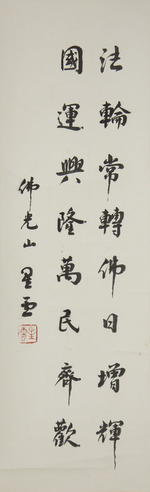 法輪常轉佛日增輝
國運興隆萬民齊歡
佛光山星雲